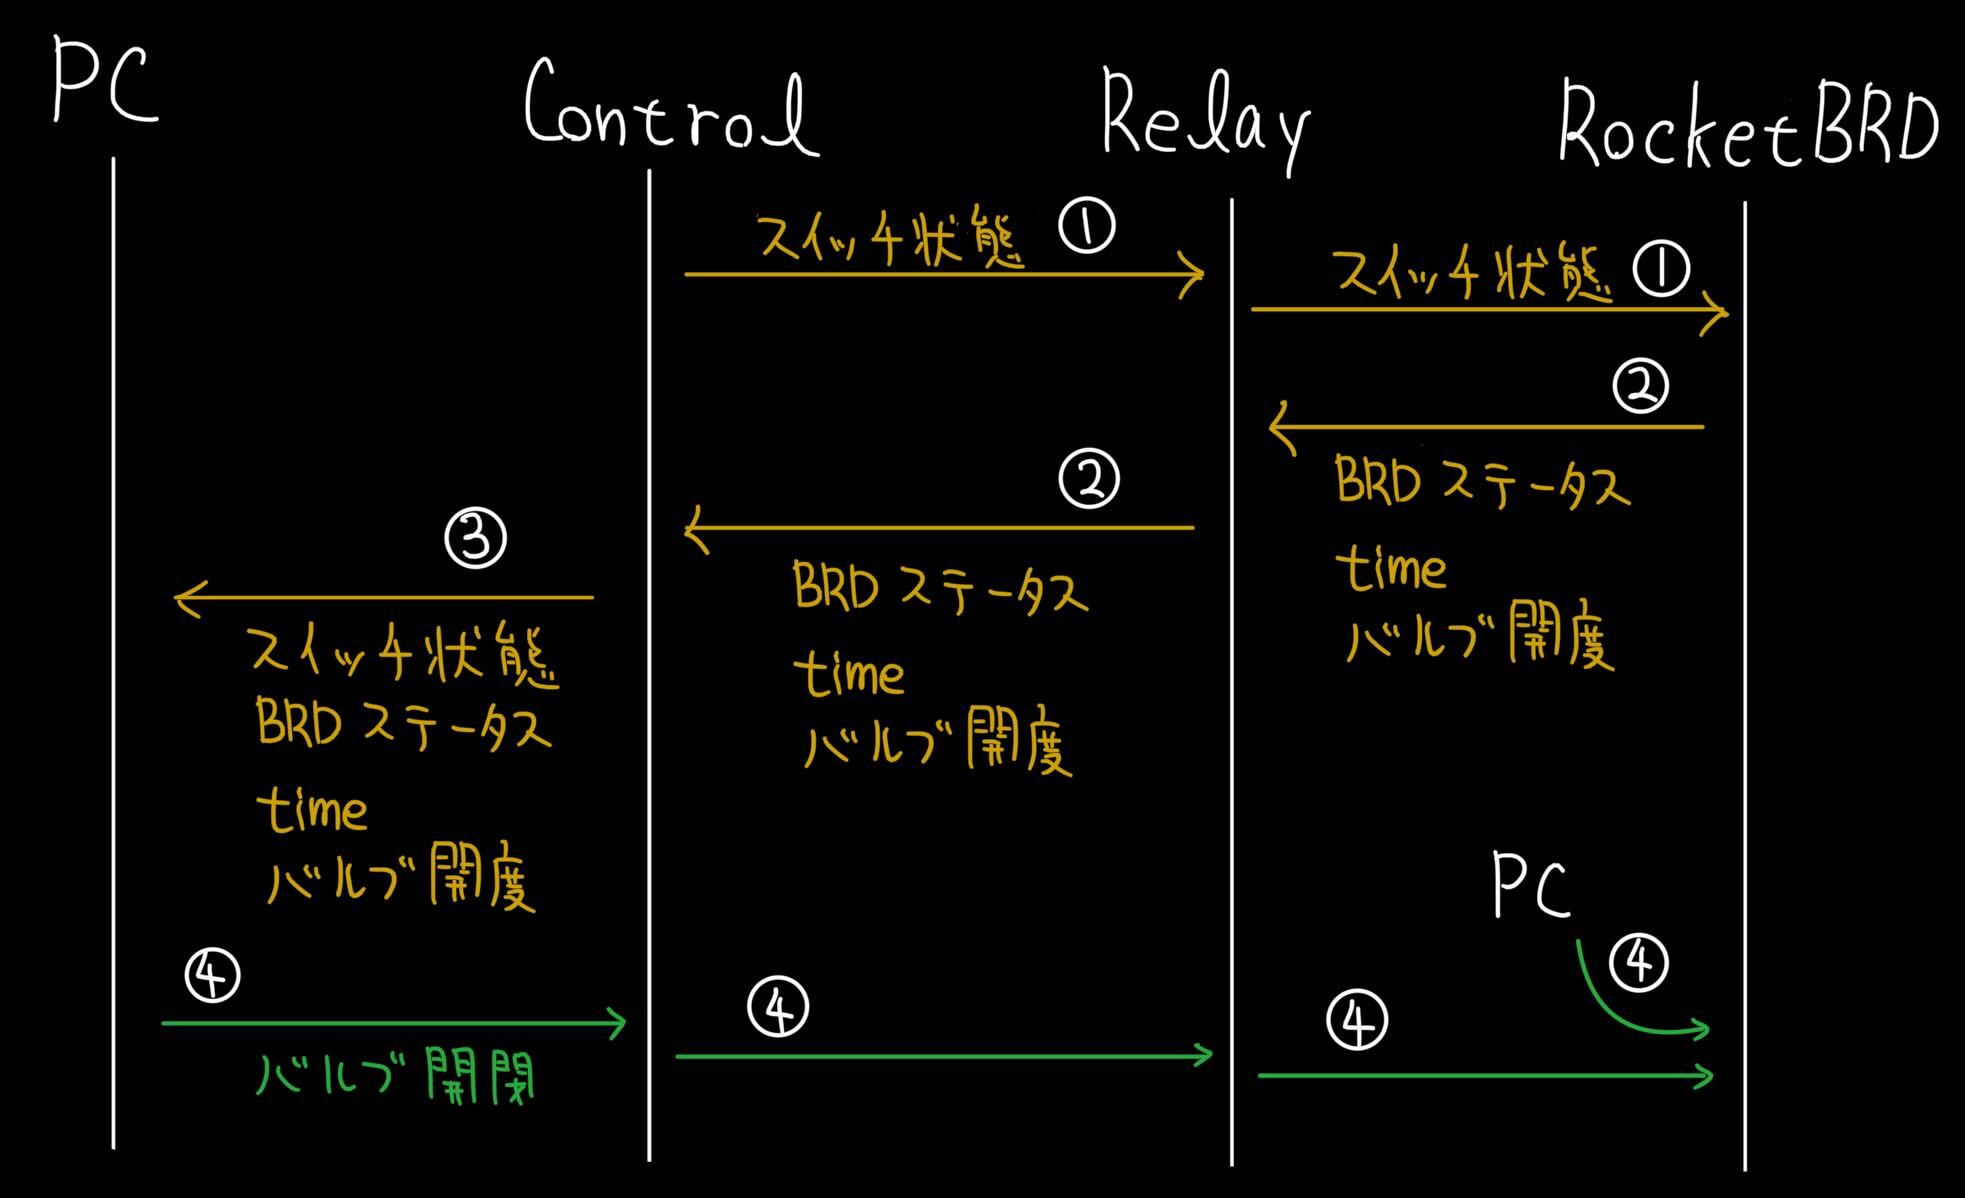 PC
Control
Relay
RocketBRD
スイッチ状態 ①
スイッチ状態 ①
②
BRD ステータス
time
バルブ開度
②
BRD ステータス
time
バルブ開度
③
スイッチ状態
BRD ステータス
time
バルブ開度
④
バルブ開閉
④
④
PC
④